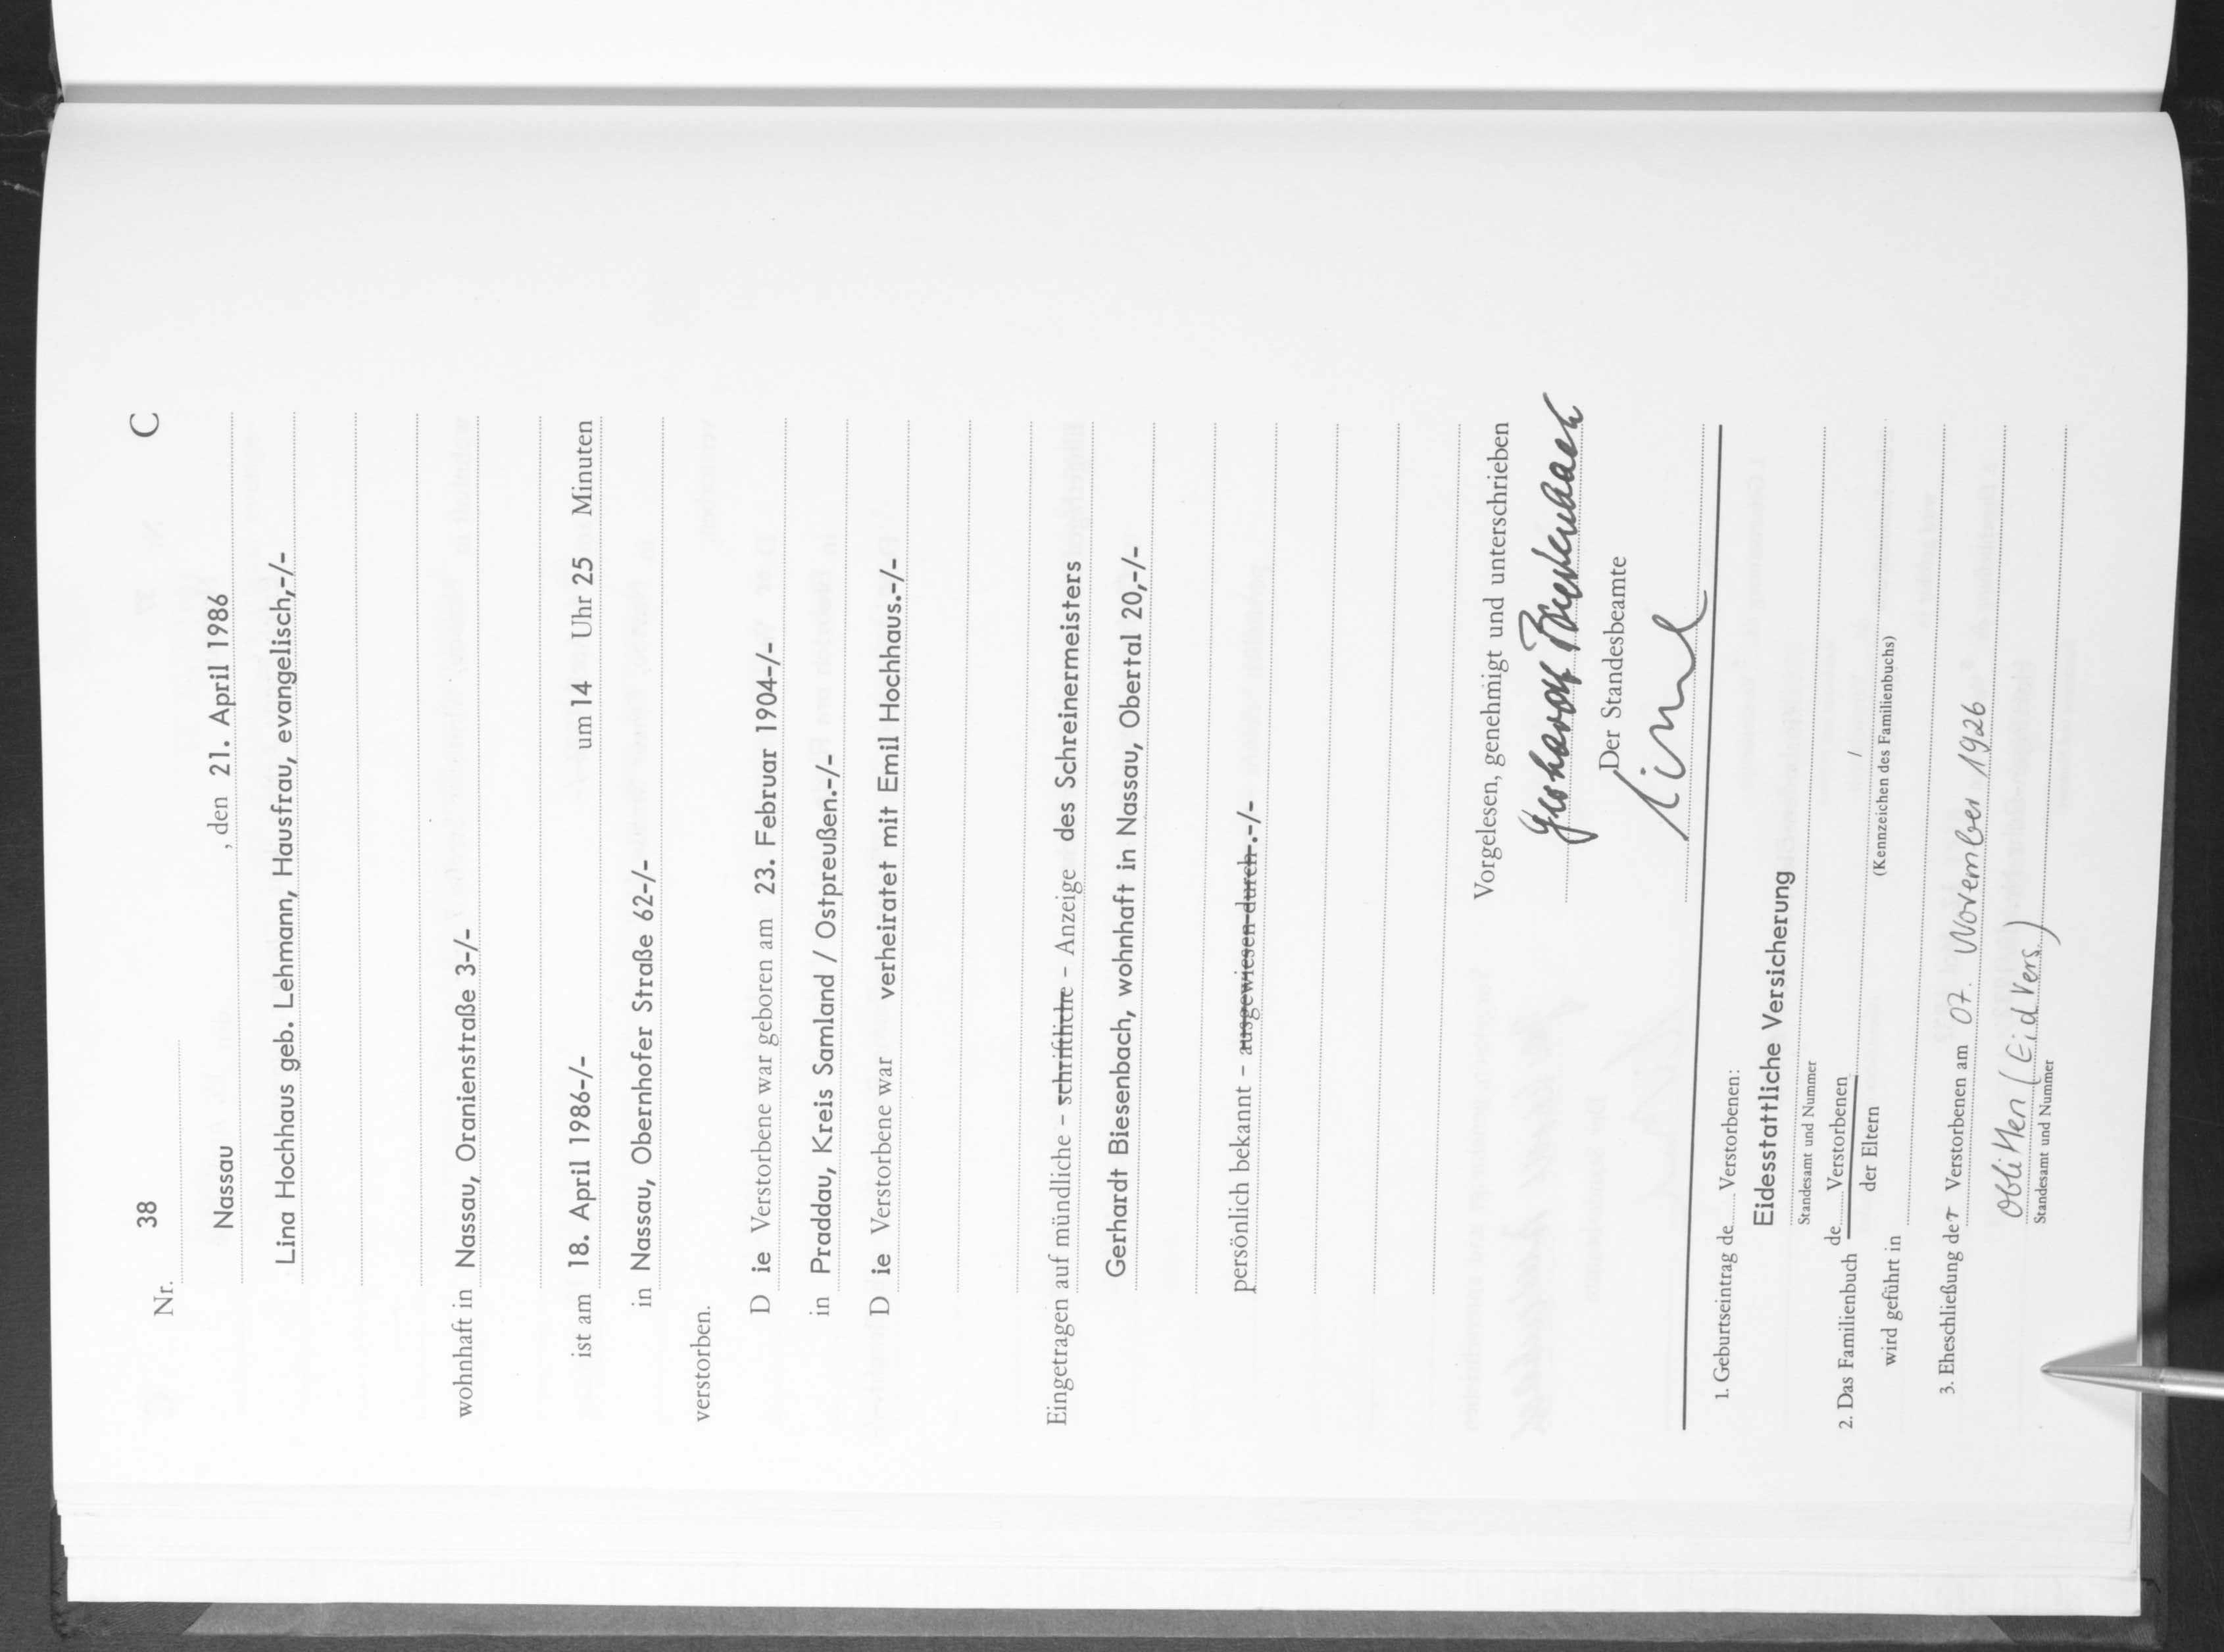 C
Nr. 38
Nassau , den 21. April 1986
Lina Hochhaus geb. Lehmann, Hausfrau, evangelisch,-/-
wohnhaft in Nassau, Oranienstraße 3-/-
ist am 18. April 1986-/- um 14 Uhr 25 Minuten
in Nassau, Obernhofer Straße 62-/-
verstorben.
D ie Verstorbene war geboren am 23. Februar 1904-/-
in Praddau, Kreis Samland / Ostpreußen.-/-
D ie Verstorbene war verheiratet mit Emil Hochhaus.-/-
Eingetragen auf mündliche - schriftliche - Anzeige des Schreinermeisters
Gerhardt Biesenbach, wohnhaft in Nassau, Obertal 20,-/-
persönlich bekannt - ausgewiesen durch .-/-
Vorgelesen, genehmigt und unterschrieben
Gerhardt Biesenbach
Der Standesbeamte
1. Geburtseintrag de Verstorbenen:
Eidesstattliche Versicherung
Standesamt und Nummer
2. Das Familienbuch de Verstorbenen /
der Eltern
wird geführt in (Kennzeichen des Familienbuchs)
3. Eheschließung der Verstorbenen am 07. November 1926
Oblitten (Eid Vers.)
Standesamt und Nummer